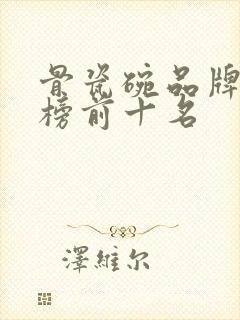 骨瓷碗品牌
榜前十名
澤維尔